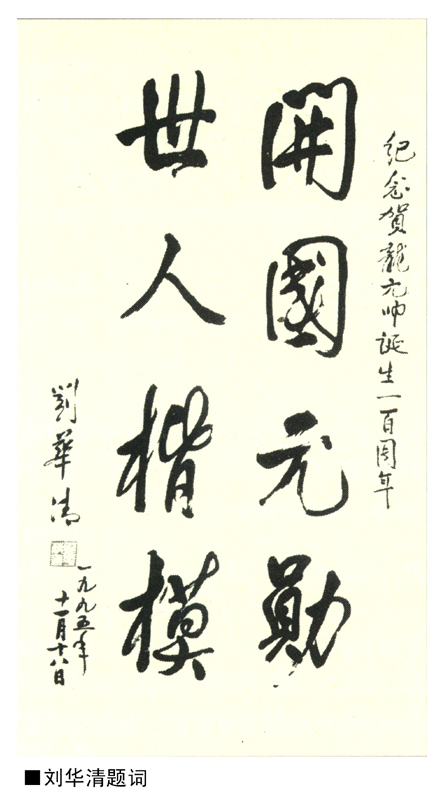 纪念贺龍元帅誕生一百周年
開國元勛
世人楷模
劉華清
一九九五年
十一月十八日
■刘华清题词